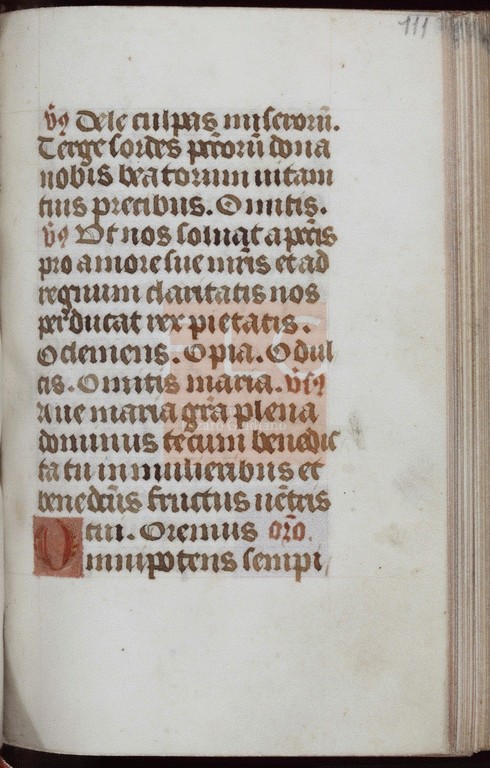 111
v̄ꝯ Dele culpas miseroꝝ̄.
Terge sordes pc̄torū dona
nobis beatorum uitam
tuis precibus. O mitis.
v̄ꝯ Ut nos soluat a pctīs
pro amore sue mr̄is et ad
regnum claritatis nos
perducat rex pietatis.
O clemens. O pia. O dul
cis. O mitis maria. v̄sꝯ
Aue maria gr̄a plena
dominus tecum benedic
ta tu in mulieribus et
benedc̄us fructus uētris
tui. Oremus or̄o.
Omnipotens sempi